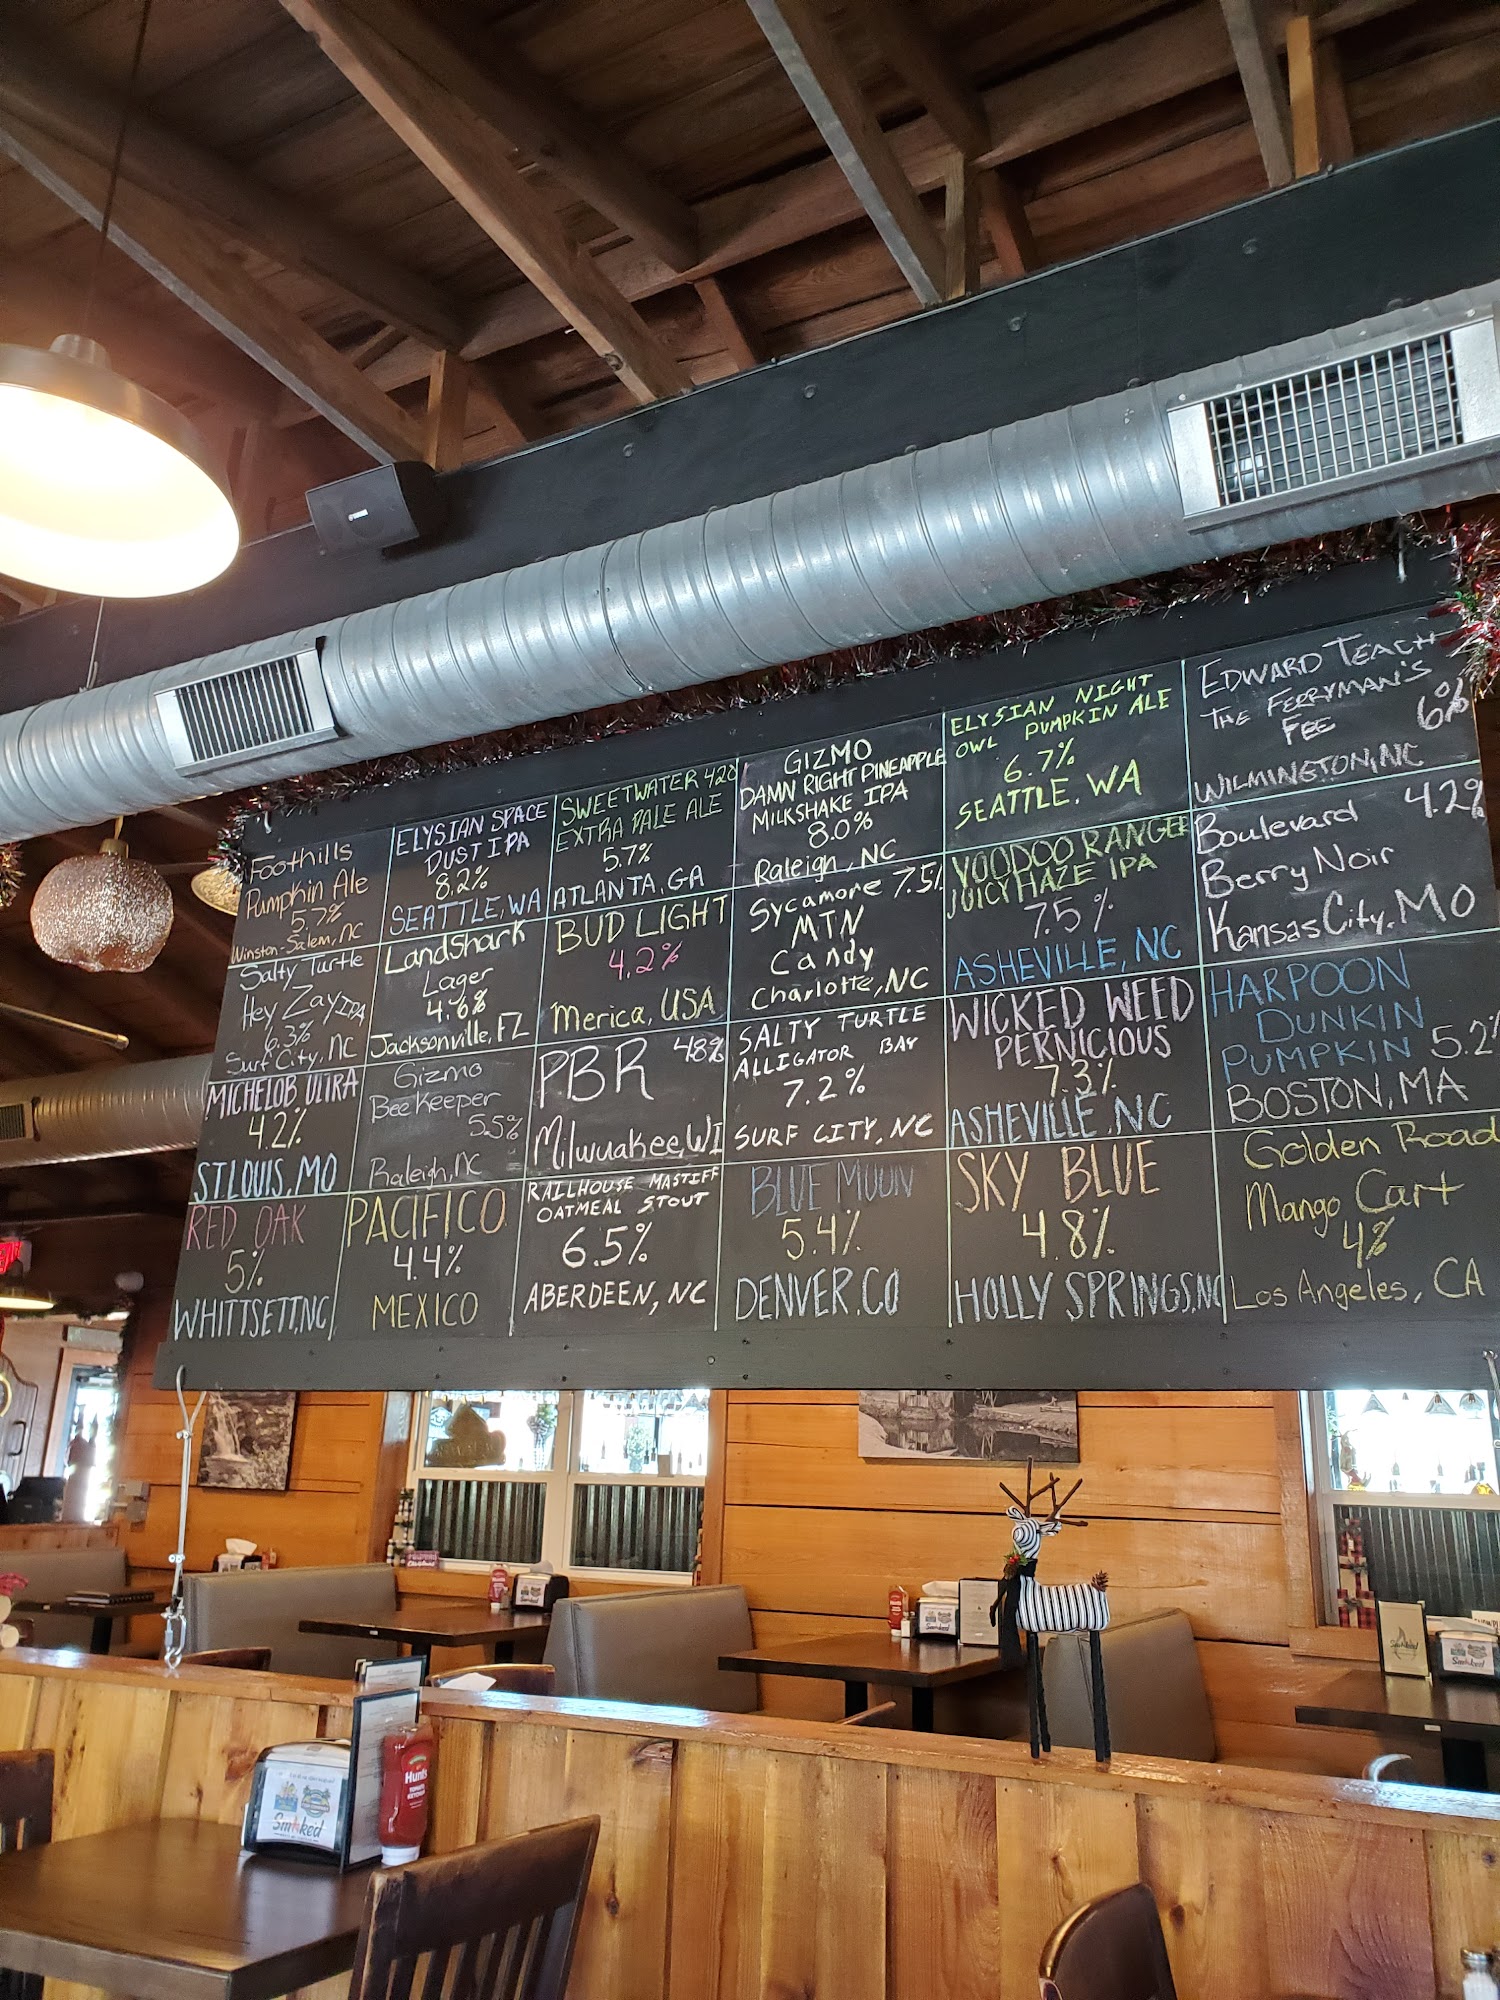 Foothills
Pumpkin Ale
5.7%
Winston-Salem, NC
ELYSIAN SPACE
DUST IPA
8.2%
SEATTLE, WA
SWEETWATER 420
EXTRA PALE ALE
5.7%
ATLANTA, GA
GIZMO
DAMN RIGHT PINEAPPLE
MILKSHAKE IPA
8.0%
Raleigh, NC
ELYSIAN NIGHT
OWL PUMPKIN ALE
6.7%
SEATTLE, WA
EDWARD TEACH
THE FERRYMAN'S
FEE 6%
WILMINGTON, NC
Salty Turtle
Hey Zay IPA
6.3%
Surf City, NC
LandShark
Lager
4.6%
Jacksonville, FL
BUD LIGHT
4.2%
Merica, USA
Sycamore 7.5%
MTN
Candy
Charlotte, NC
VOODOO RANGER
JUICY HAZE IPA
7.5%
ASHEVILLE, NC
Boulevard 4.2%
Berry Noir
Kansas City, MO
MICHELOB ULTRA
4.2%
ST. LOUIS, MO
Gizmo
Bee Keeper
5.5%
Raleigh, NC
PBR 4.8%
Milwuakee, WI
SALTY TURTLE
ALLIGATOR BAY
7.2%
SURF CITY, NC
WICKED WEED
PERNICIOUS
7.3%
ASHEVILLE, NC
HARPOON
DUNKIN
PUMPKIN 5.2%
BOSTON, MA
RED OAK
5%
WHITTSETT, NC
PACIFICO
4.4%
MEXICO
RAILHOUSE MASTIFF
OATMEAL STOUT
6.5%
ABERDEEN, NC
BLUE MUUN
5.4%
DENVER, CO
SKY BLUE
4.8%
HOLLY SPRINGS, NC
Golden Road
Mango Cart
4%
Los Angeles, CA
YAMAHA
Hunt's
TOMATO
KETCHUP
Smoked
Smoked
Smoked
Smoked